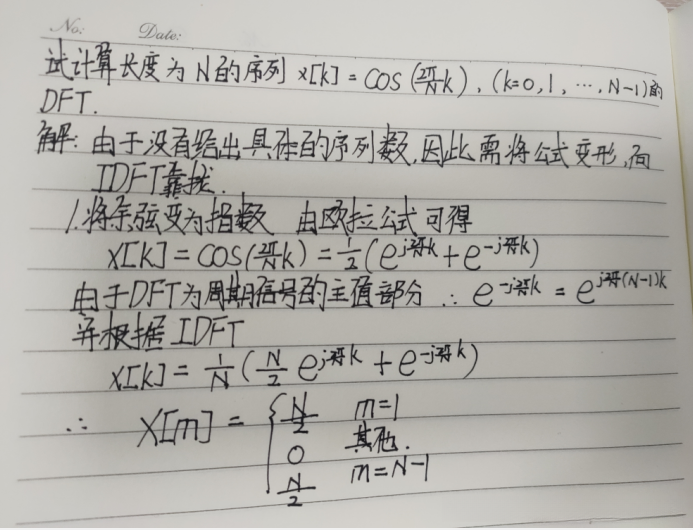 No: Date:
试计算长度为N的序列 x[k] = cos(2π/N k), (k=0,1,…,N-1)的
DFT.
解: 由于没有给出具体的序列数,因此需将公式变形,向
IDFT靠拢.
1.将余弦变为指数 由欧拉公式可得
x[k] = cos(2π/N k) = 1/2 (e^{j2π/N k} + e^{-j2π/N k})
由于DFT为周期信号的主值部分 ∴ e^{-j2π/N k} = e^{j2π/N (N-1)k}
并根据IDFT
x[k] = 1/N (N/2 e^{j2π/N k} + e^{-j2π/N k})
∴ X[m] = { N/2 m=1
0 其他.
N/2 m=N-1